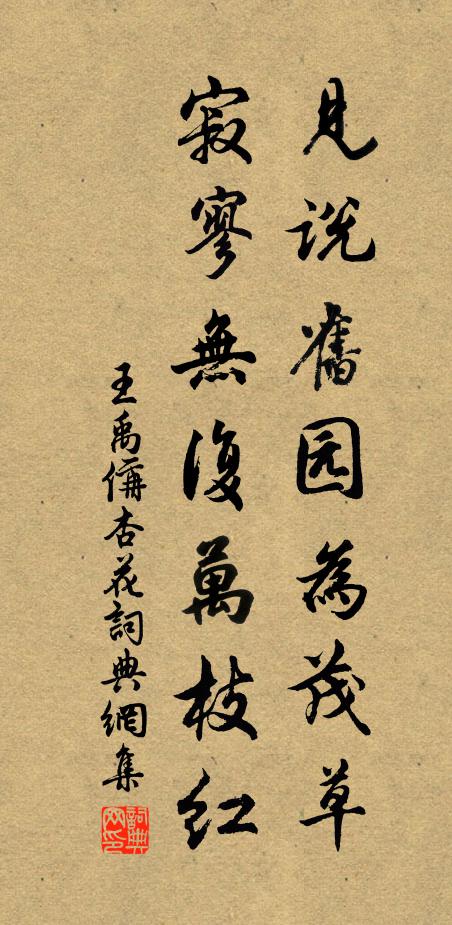 見説舊园為茂草
寂寥無復萬枝紅
王禹偁杏花詞典網集
詞典網印